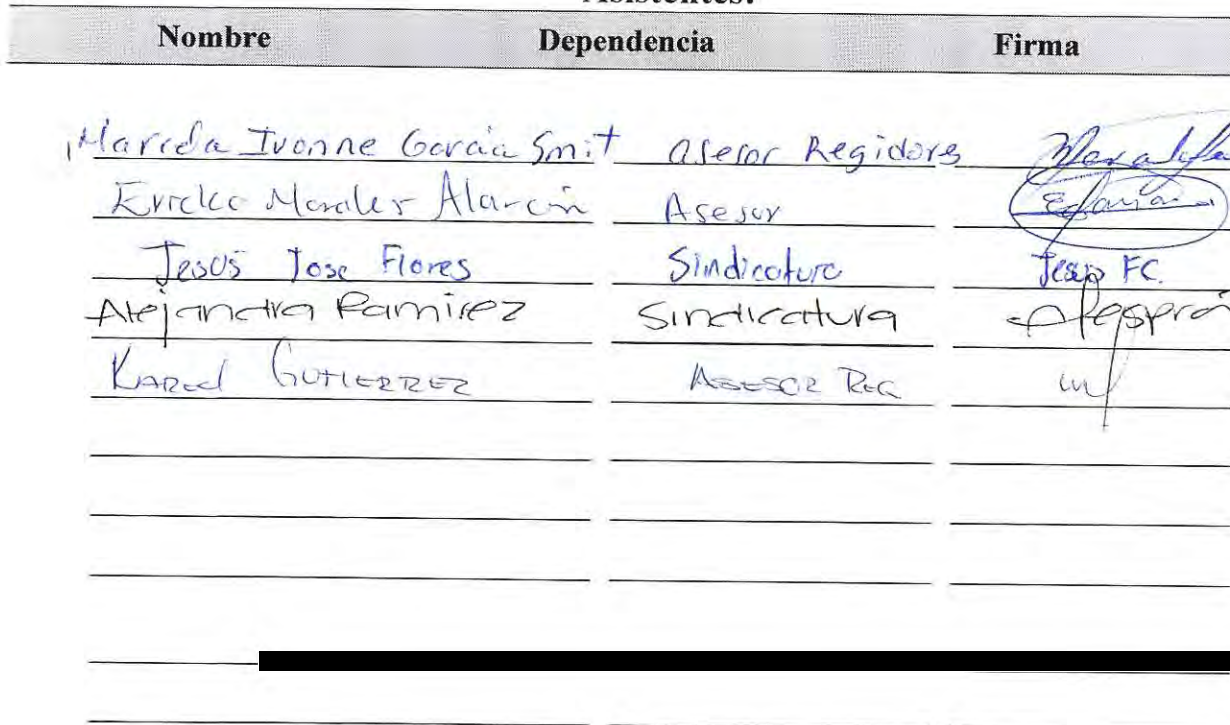 Asistentes:
Nombre Dependencia Firma
Ivonne García Smit asesor Regidores
Morales Alarcón Asesor
Jesús Jose Flores Sindicatura Jesus FC.
Alejandra Ramirez Sindicatura
Karel GUTIERREZ ASESOR REG